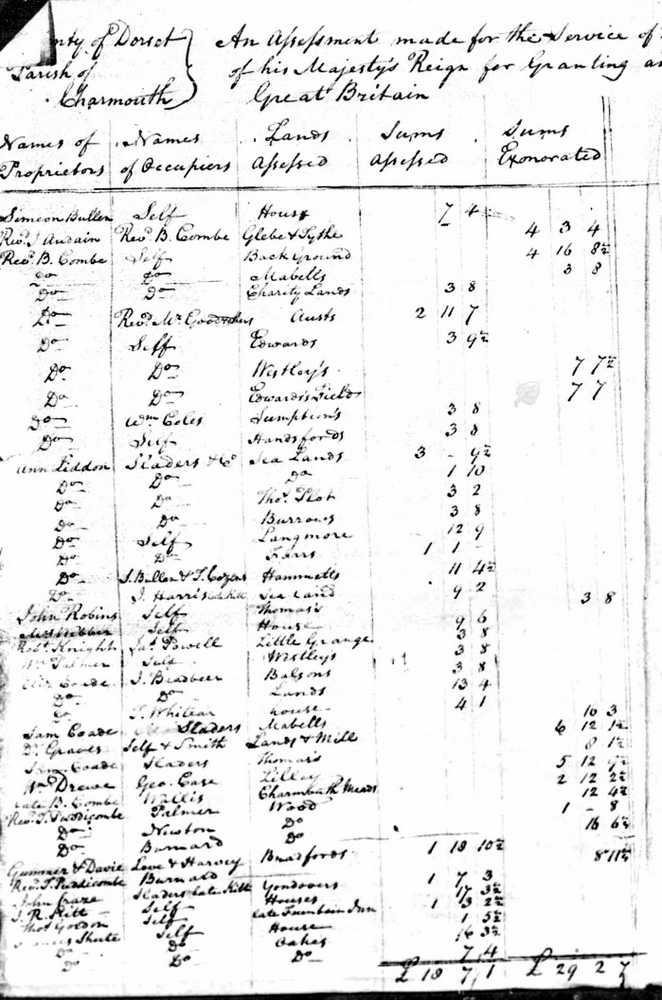 County of Dorset An Assessment made for the Service of
Parish of of his Majesty's Reign for Granting an
Charmouth Great Britain
Names of Names Lands Sums Sums
Proprietors of Occupiers Assessed Assessed Exonorated
Simeon Bullen Self House 7 4
Revd. J Audain Revd. B. Combe Glebe & Tythe 4 3 4
Revd. B. Combe Self Back Ground 4 16 8½
Do Do Mabells 3 8
Do Do Charity Lands 3 8
Do Revd. Mr. Austs 2 11 7
Do Self Edwards 3 9½
Do Do Westley's 7 7½
Do Do Edwards's Fields 7 7
Do Wm Coles Sumption's 3 8
Do Self Handsfords 3 8
Ann Liddon Sladers & Co Sea Lands 3 - 9½
Do Do Do 1 10
Do Do Thos. Plot 3 2
Do Do Burrows 3 8
Do Self Langmore 12 9
Do Do 1 1 -
Do J. Bullen & T. Cozens Hammetts 11 4½
Do J. Harris Sea Land 9 2
John Robins Self Thomas's 3 8
Self House 9 6
Robt. Knight Jas. Powell Little Grange 3 8
Wm Palmer Self Westleys 3 8
Eliz Coade J. Bradbeer Balsons 3 8
Do Do Lands 13 4
Do J. Whitear house 4 1
Sam Coade Sladers Mabells 10 3
Dr. Graves Self & Smith Lands & Mill 6 12 1½
Sam. Coade Sladers Thomas's 8 1½
Wm Drewe Geo. Case Lilley 5 12 9½
Late B. Combe Wallis Charmouth Meads 2 12 2½
Revd. T. Puddicombe Palmer Wood 12 4½
Do Newton Do 1 - 8
Do Burnard Do 16 6½
Gummer & Davie Love & Harvey Bradfords 1 18 10½
Revd. T. Puddicombe Burnard 8 11½
John Caze Sladers late Pitt Gondovers 1 7 3
J. R. Pitt Self Houses 17 3½
Thos Gordon Self late Fountain Inn 1 13 2½
Shute Self House 1 5½
Do Do Oakes 16 3½
Do Do Do 7 4
£ 18 7 1 £ 29 2 7